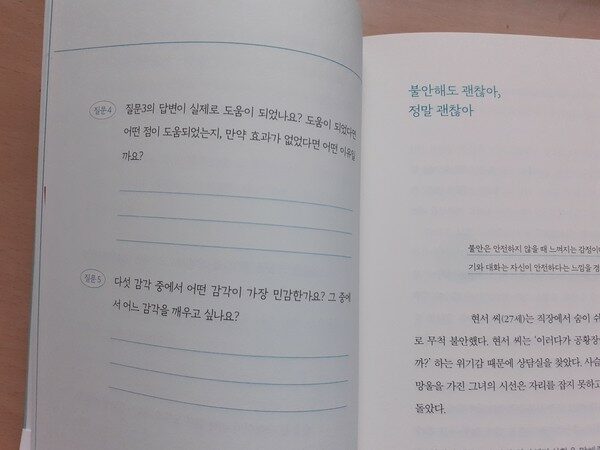 질문4
질문3의 답변이 실제로 도움이 되었나요? 도움이 되었다면
어떤 점이 도움되었는지, 만약 효과가 없었다면 어떤 이유일
까요?
질문5
다섯 감각 중에서 어떤 감각이 가장 민감한가요? 그 중에
서 어느 감각을 깨우고 싶나요?
불안해도 괜찮아,
정말 괜찮아
불안은 안전하지 않을 때 느껴지는 감정이
기와 대화는 자신이 안전하다는 느낌을 경
현서 씨(27세)는 직장에서 숨이 쉬
로 무척 불안했다. 현서 씨는 '이러다가 공황장
까?' 하는 위기감 때문에 상담실을 찾았다. 사슴
망울을 가진 그녀의 시선은 자리를 잡지 못하고
돌았다.